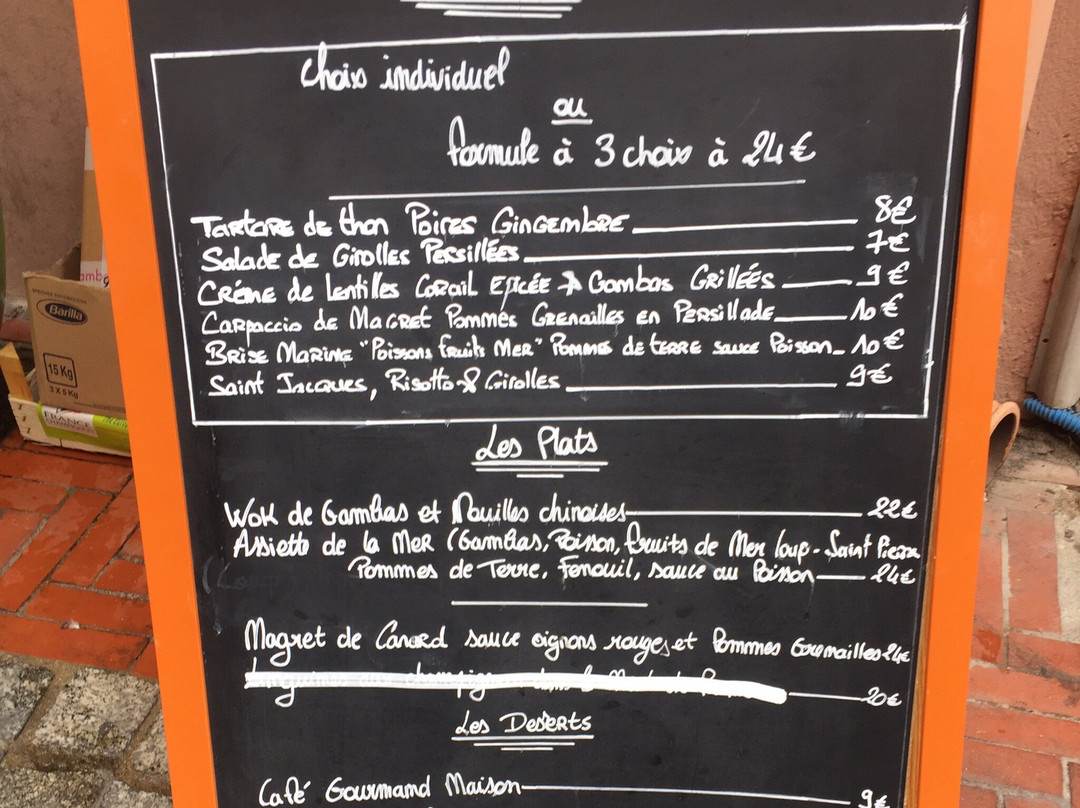 Choix individuel
ou
formule à 3 choix à 24€
Tartare de thon Poires Gingembre 8€
Salade de Girolles Persillées 7€
Créme de Lentilles Corail Epicée & Gambas Grillées 9€
Carpaccio de Magret Pommes Grenailles en Persillade 10€
Brise Marine "Poissons fruits Mer" Pommes de terre sauce Poisson 10€
Saint Jacques, Risotto & Girolles 9€
Les Plats
Wok de Gambas et Nouilles chinoises 22€
Assiette de la Mer (Gambas, Poisson, fruits de Mer loup-Saint Pierre
Pommes de Terre, Fenouil, sauce au Poisson 24€
Magret de Canard sauce oignons rouges et Pommes Grenailles 24€
20€
Les Desserts
Café Gourmand Maison 9€
Barilla
15 Kg
3 x 5 Kg
FRANCE